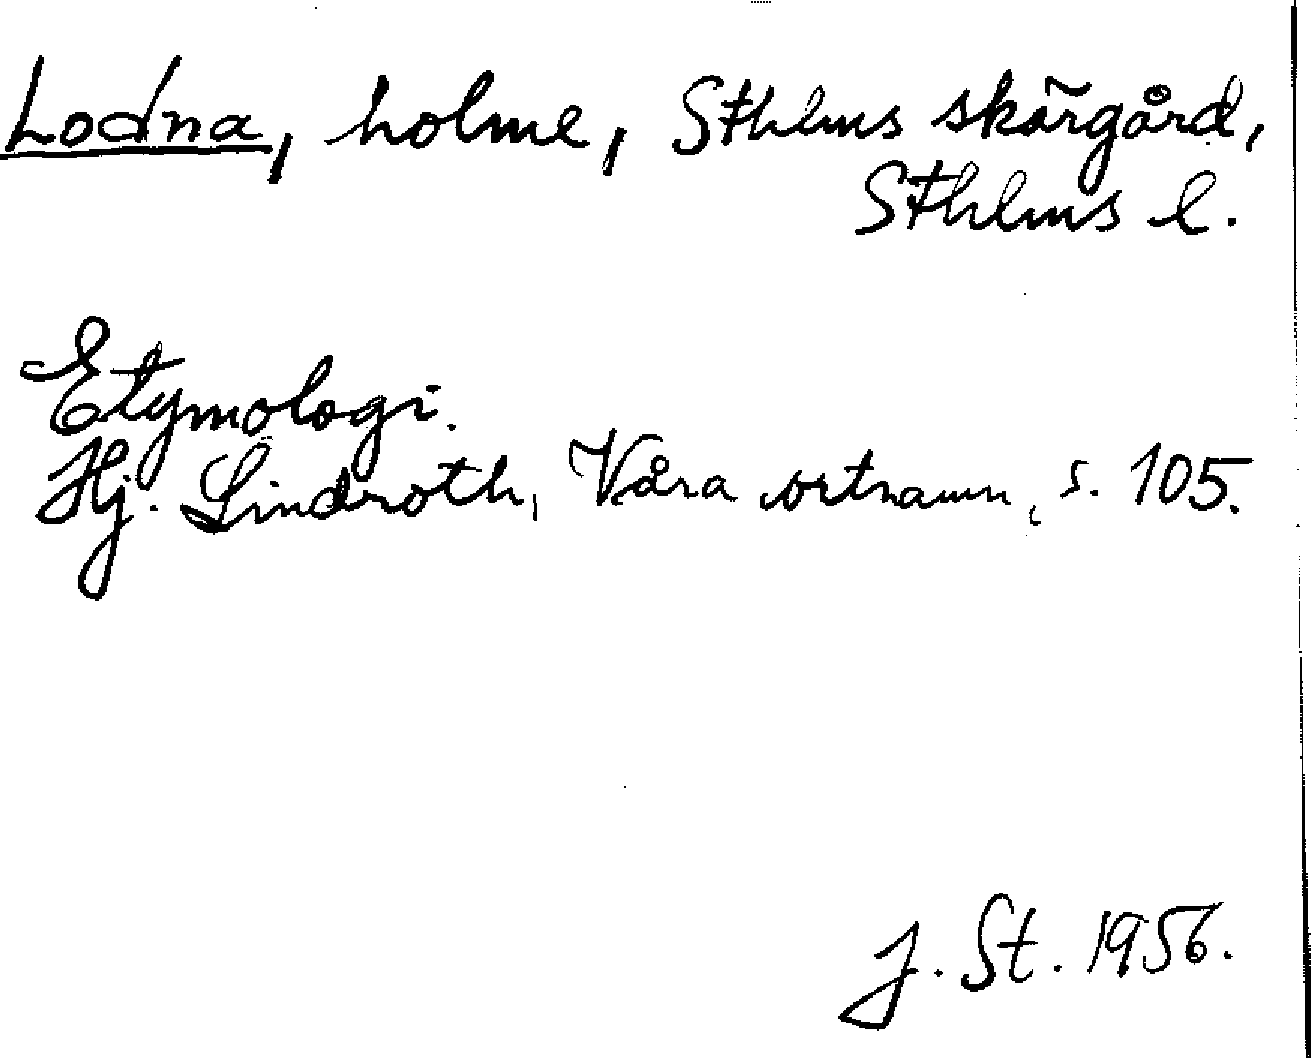 Lodna, holme, Sthlms skärgård,
Sthlms l.
Etymologi.
Hj. Lindroth, Våra ortnamn, s. 105.
J. St. 1956.